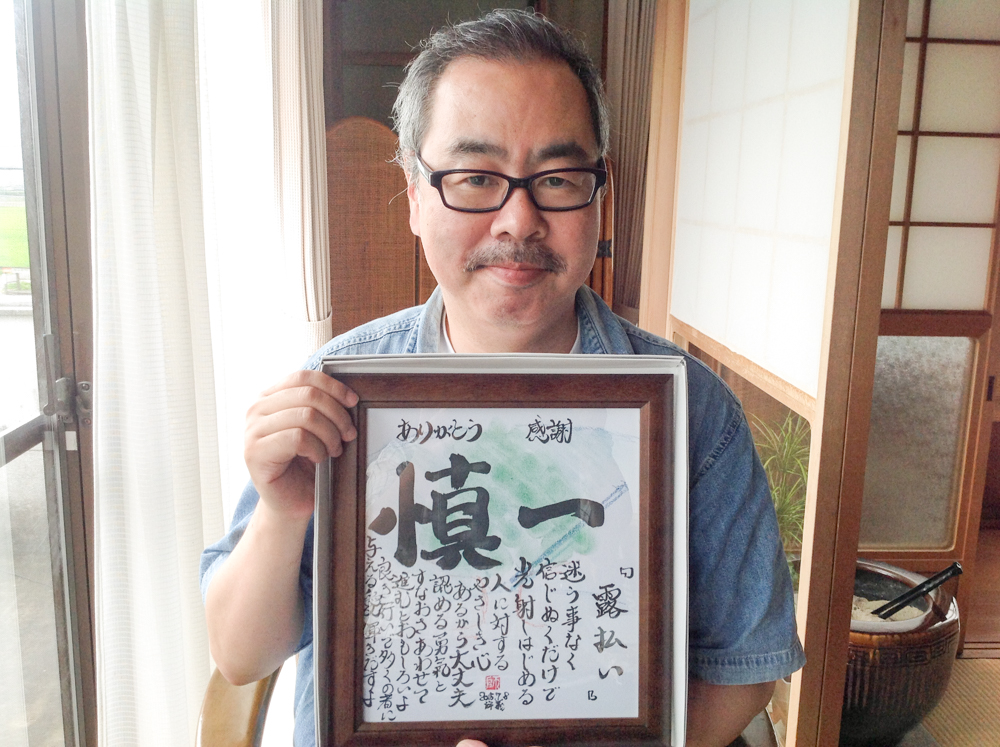 ありがとう 感謝
慎一
「露払い」
迷う事なく
信じぬくだけで
光射しはじめる
人に対する
やさしき心
あるから大丈夫
認める勇気と
すなおさあわせて
進むとおもしろいよ
良き行いで多くの者に
与える